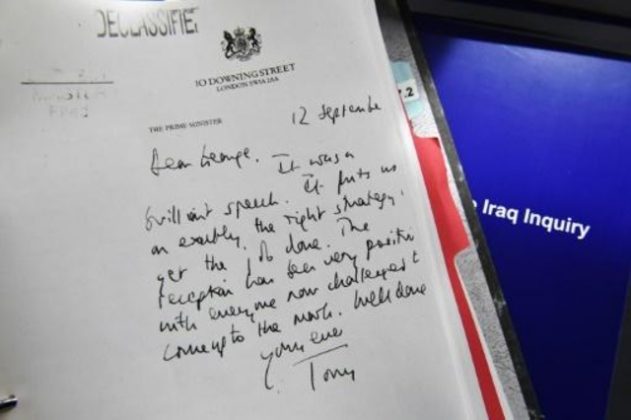 DECLASSIFIED
10 DOWNING STREET
LONDON SW1A 2AA
THE PRIME MINISTER
12 September
Dear George. It was a
brilliant speech. It puts us
on exactly the right strategy.
get the job done. The
reception has been very positive
with everyone now challenged to
come up to the mark. Well done
Yours ever
Tony
7.2
Iraq Inquiry